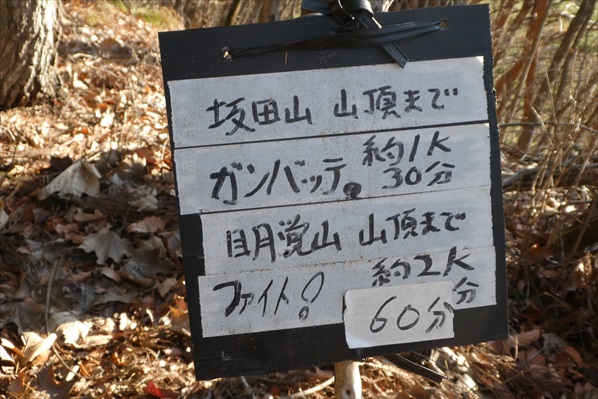 坂田山 山頂まで
ガンバッテ。約1K
30分
目覚山 山頂まで
ファイト! 約2K
60分
分